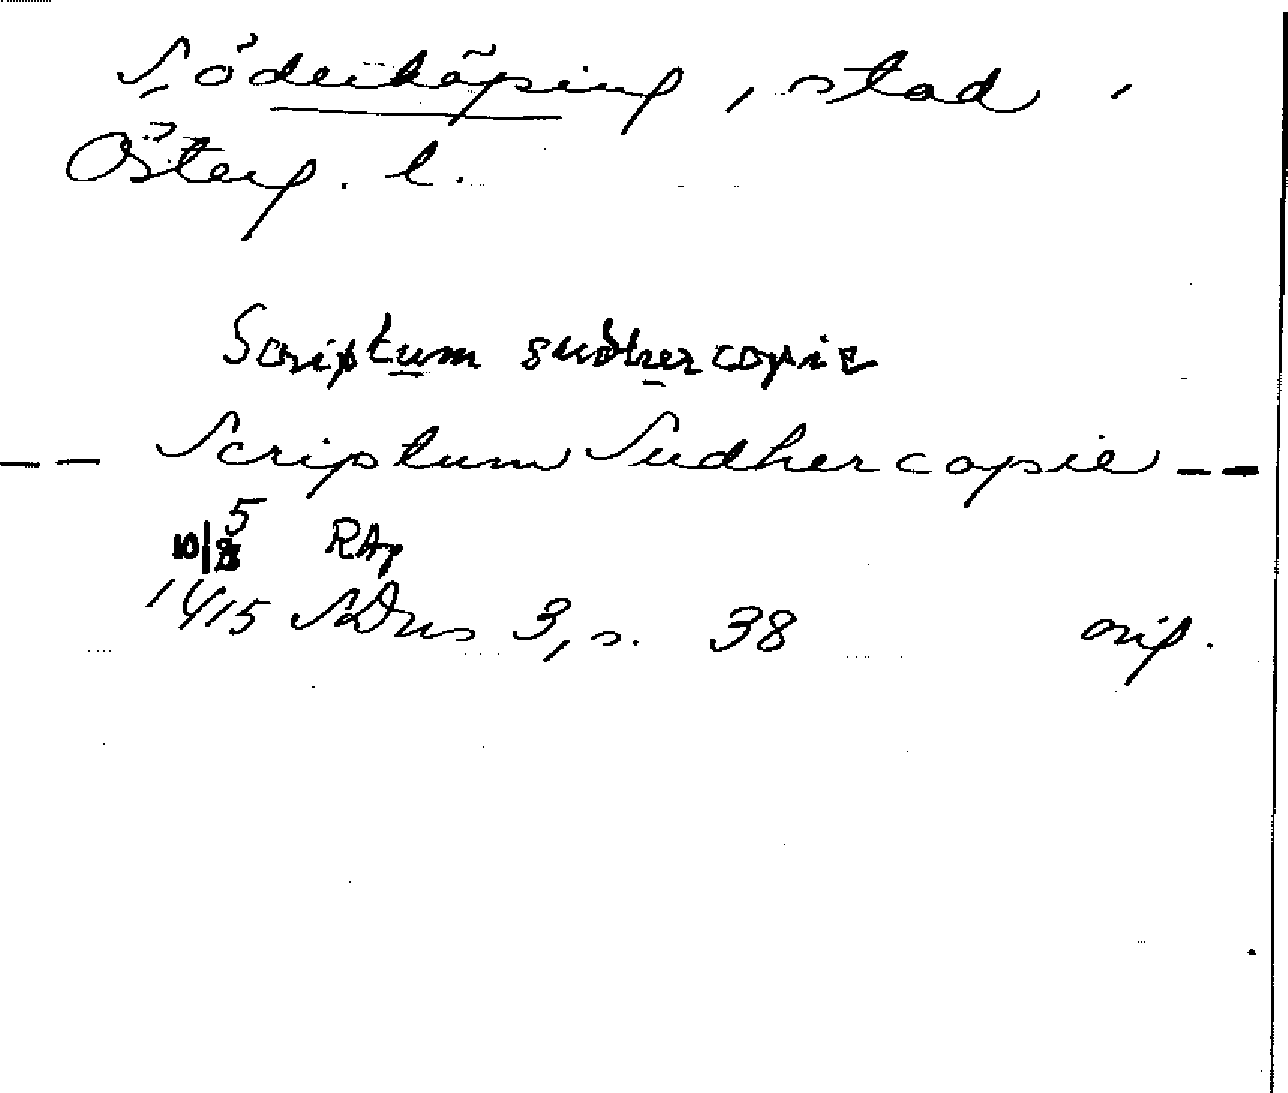 Söderköping, stad,
Österg. l.
Scriptum sudhercopie
-- Scriptum Sudhercopie --
10/5 RAp
1415 SDns 3, s. 38 orig.